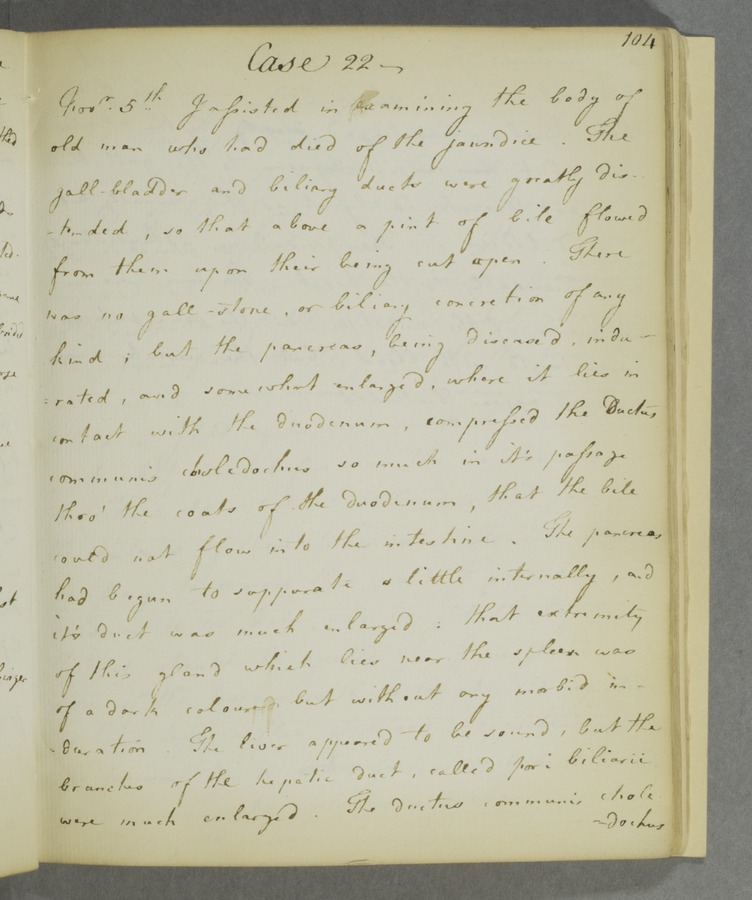 104
Case 22
Novr. 5th I assisted in examining the body of
old man who had died of the jaundice. The
gall-bladder and biliary ducts were greatly dis-
-tended, so that above a pint of bile flowed
from them upon their being cut open. There
was no gall-stone, or biliary concretion of any
kind; but the pancreas, being diseased, indu-
=rated, and somewhat enlarged, where it lies in
contact with the duodenum, compressed the Ductus
communis choledochus so much in it's passage
thro' the coats of the duodenum, that the bile
could not flow into the intestine. The pancreas
had begun to suppurate a little internally, and
it's duct was much enlarged: that extremity
of this gland which lies near the spleen was
of a dark colour, but without any morbid in-
-duration. The liver appeared to be sound, but the
branches of the hepatic duct, called pori biliarii
were much enlarged. The ductus communis chole
-dochus